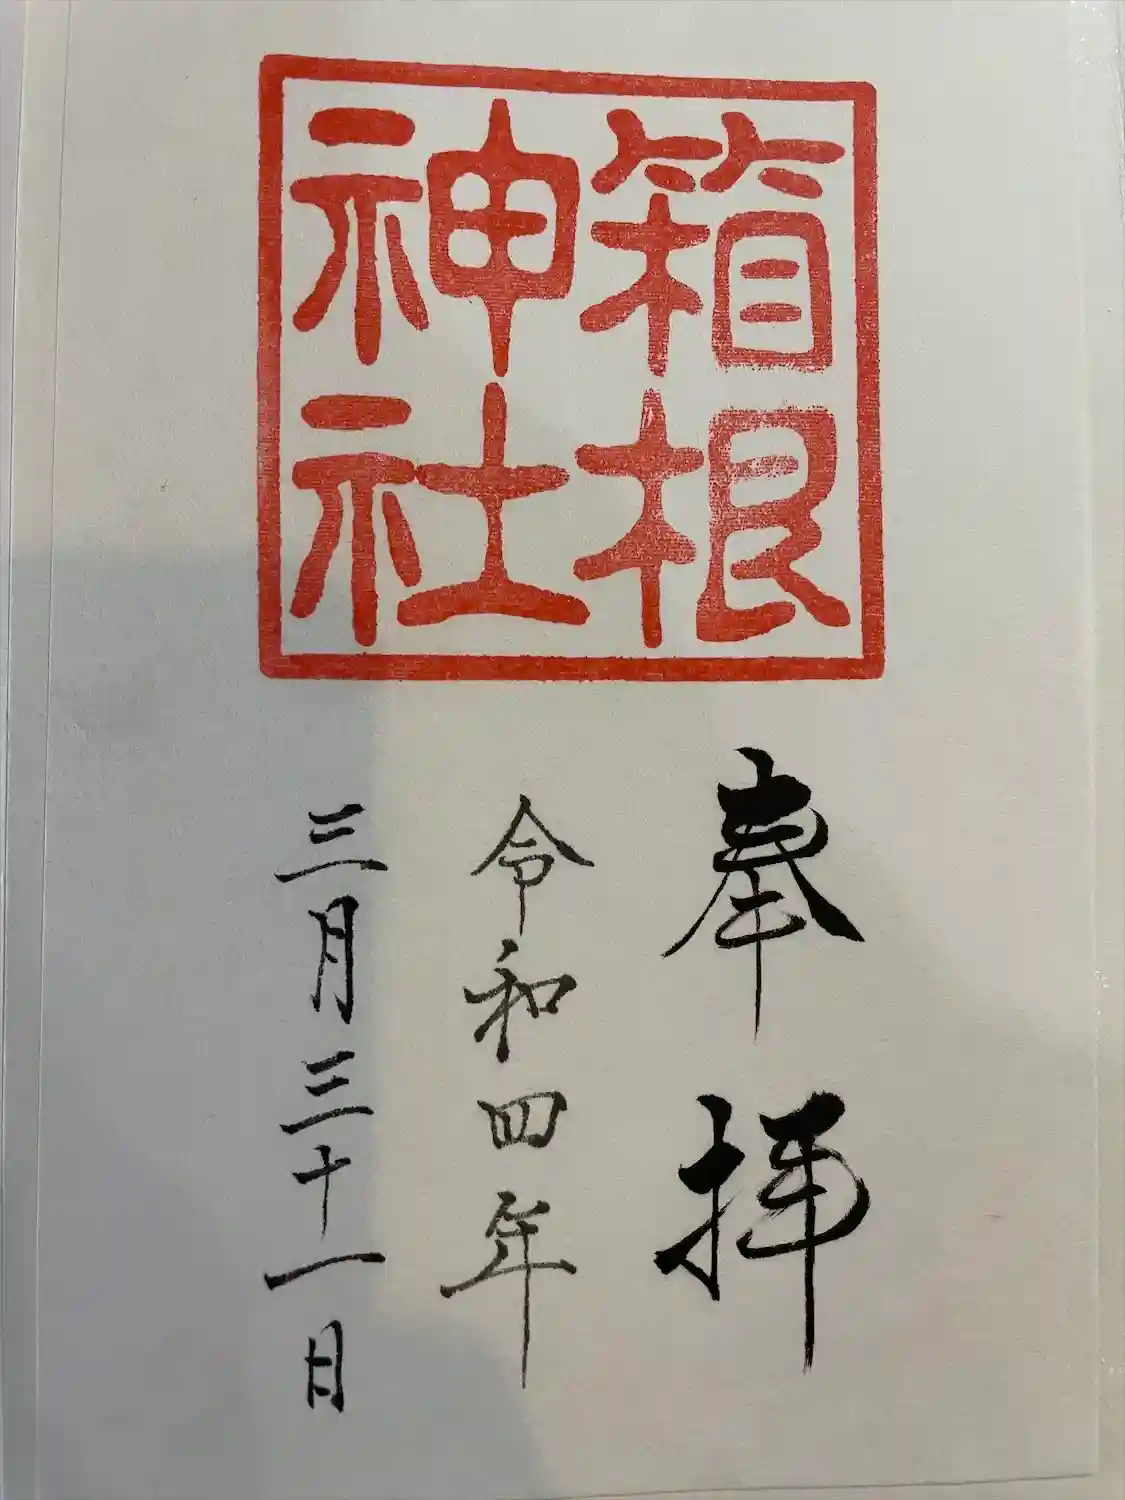 箱根
神社
奉拝
令和四年
三月三十一日